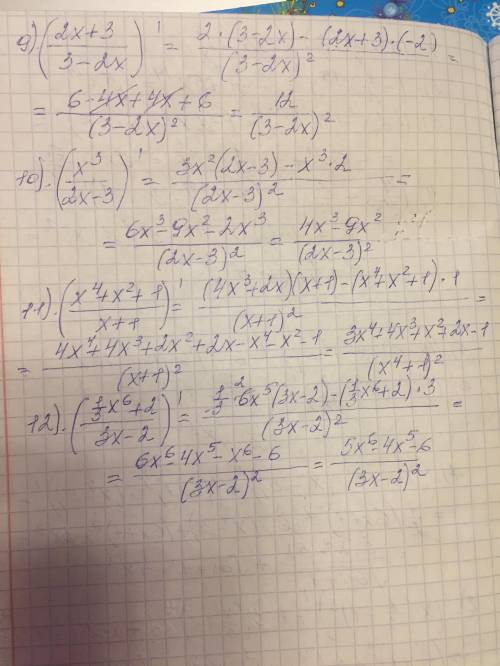 9) (2x+3 / 3-2x)' = 2·(3-2x)-(2x+3)·(-2) / (3-2x)² =
= 6-4x+4x+6 / (3-2x)² = 12 / (3-2x)²
10). (x³ / 2x-3)' = 3x²(2x-3)-x³·2 / (2x-3)² =
= 6x³-9x²-2x³ / (2x-3)² = 4x³-9x² / (2x-3)²
11). (x⁴+x²+1 / x+1)' = (4x³+2x)(x+1)-(x⁴+x²+1)·1 / (x+1)² =
= 4x⁴+4x³+2x²+2x-x⁴-x²-1 / (x+1)² = 3x⁴+4x³+x²+2x-1 / (x⁴+1)²
12). (⅓x⁶+2 / 3x-2)' = ⅓·6²x⁵(3x-2)-(⅓x⁶+2)·3 / (3x-2)² =
= 6x⁶-4x⁵-x⁶-6 / (3x-2)² = 5x⁶-4x⁵-6 / (3x-2)²